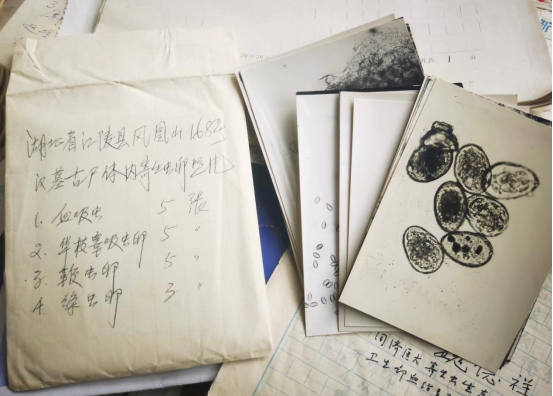 湖北省江陵县凤凰山168号
汉墓古尸体内寄生虫卵照片
1. 血吸虫 5 张
2. 华枝睾吸虫卵 5 〃
3. 鞭虫卵 5 〃
4. 绦虫卵 3 〃
同济医大寄生虫
卫生部血